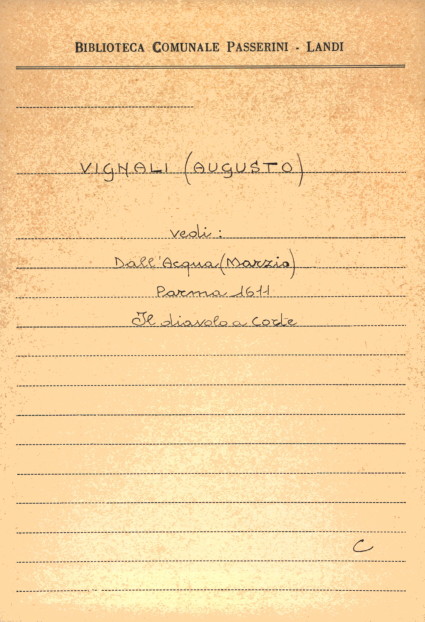 BIBLIOTECA COMUNALE PASSERINI - LANDI
VIGNALI (AUGUSTO)
vedi :
Dall'Acqua (Marzio)
Parma 1611
Il diavolo a Corte
C